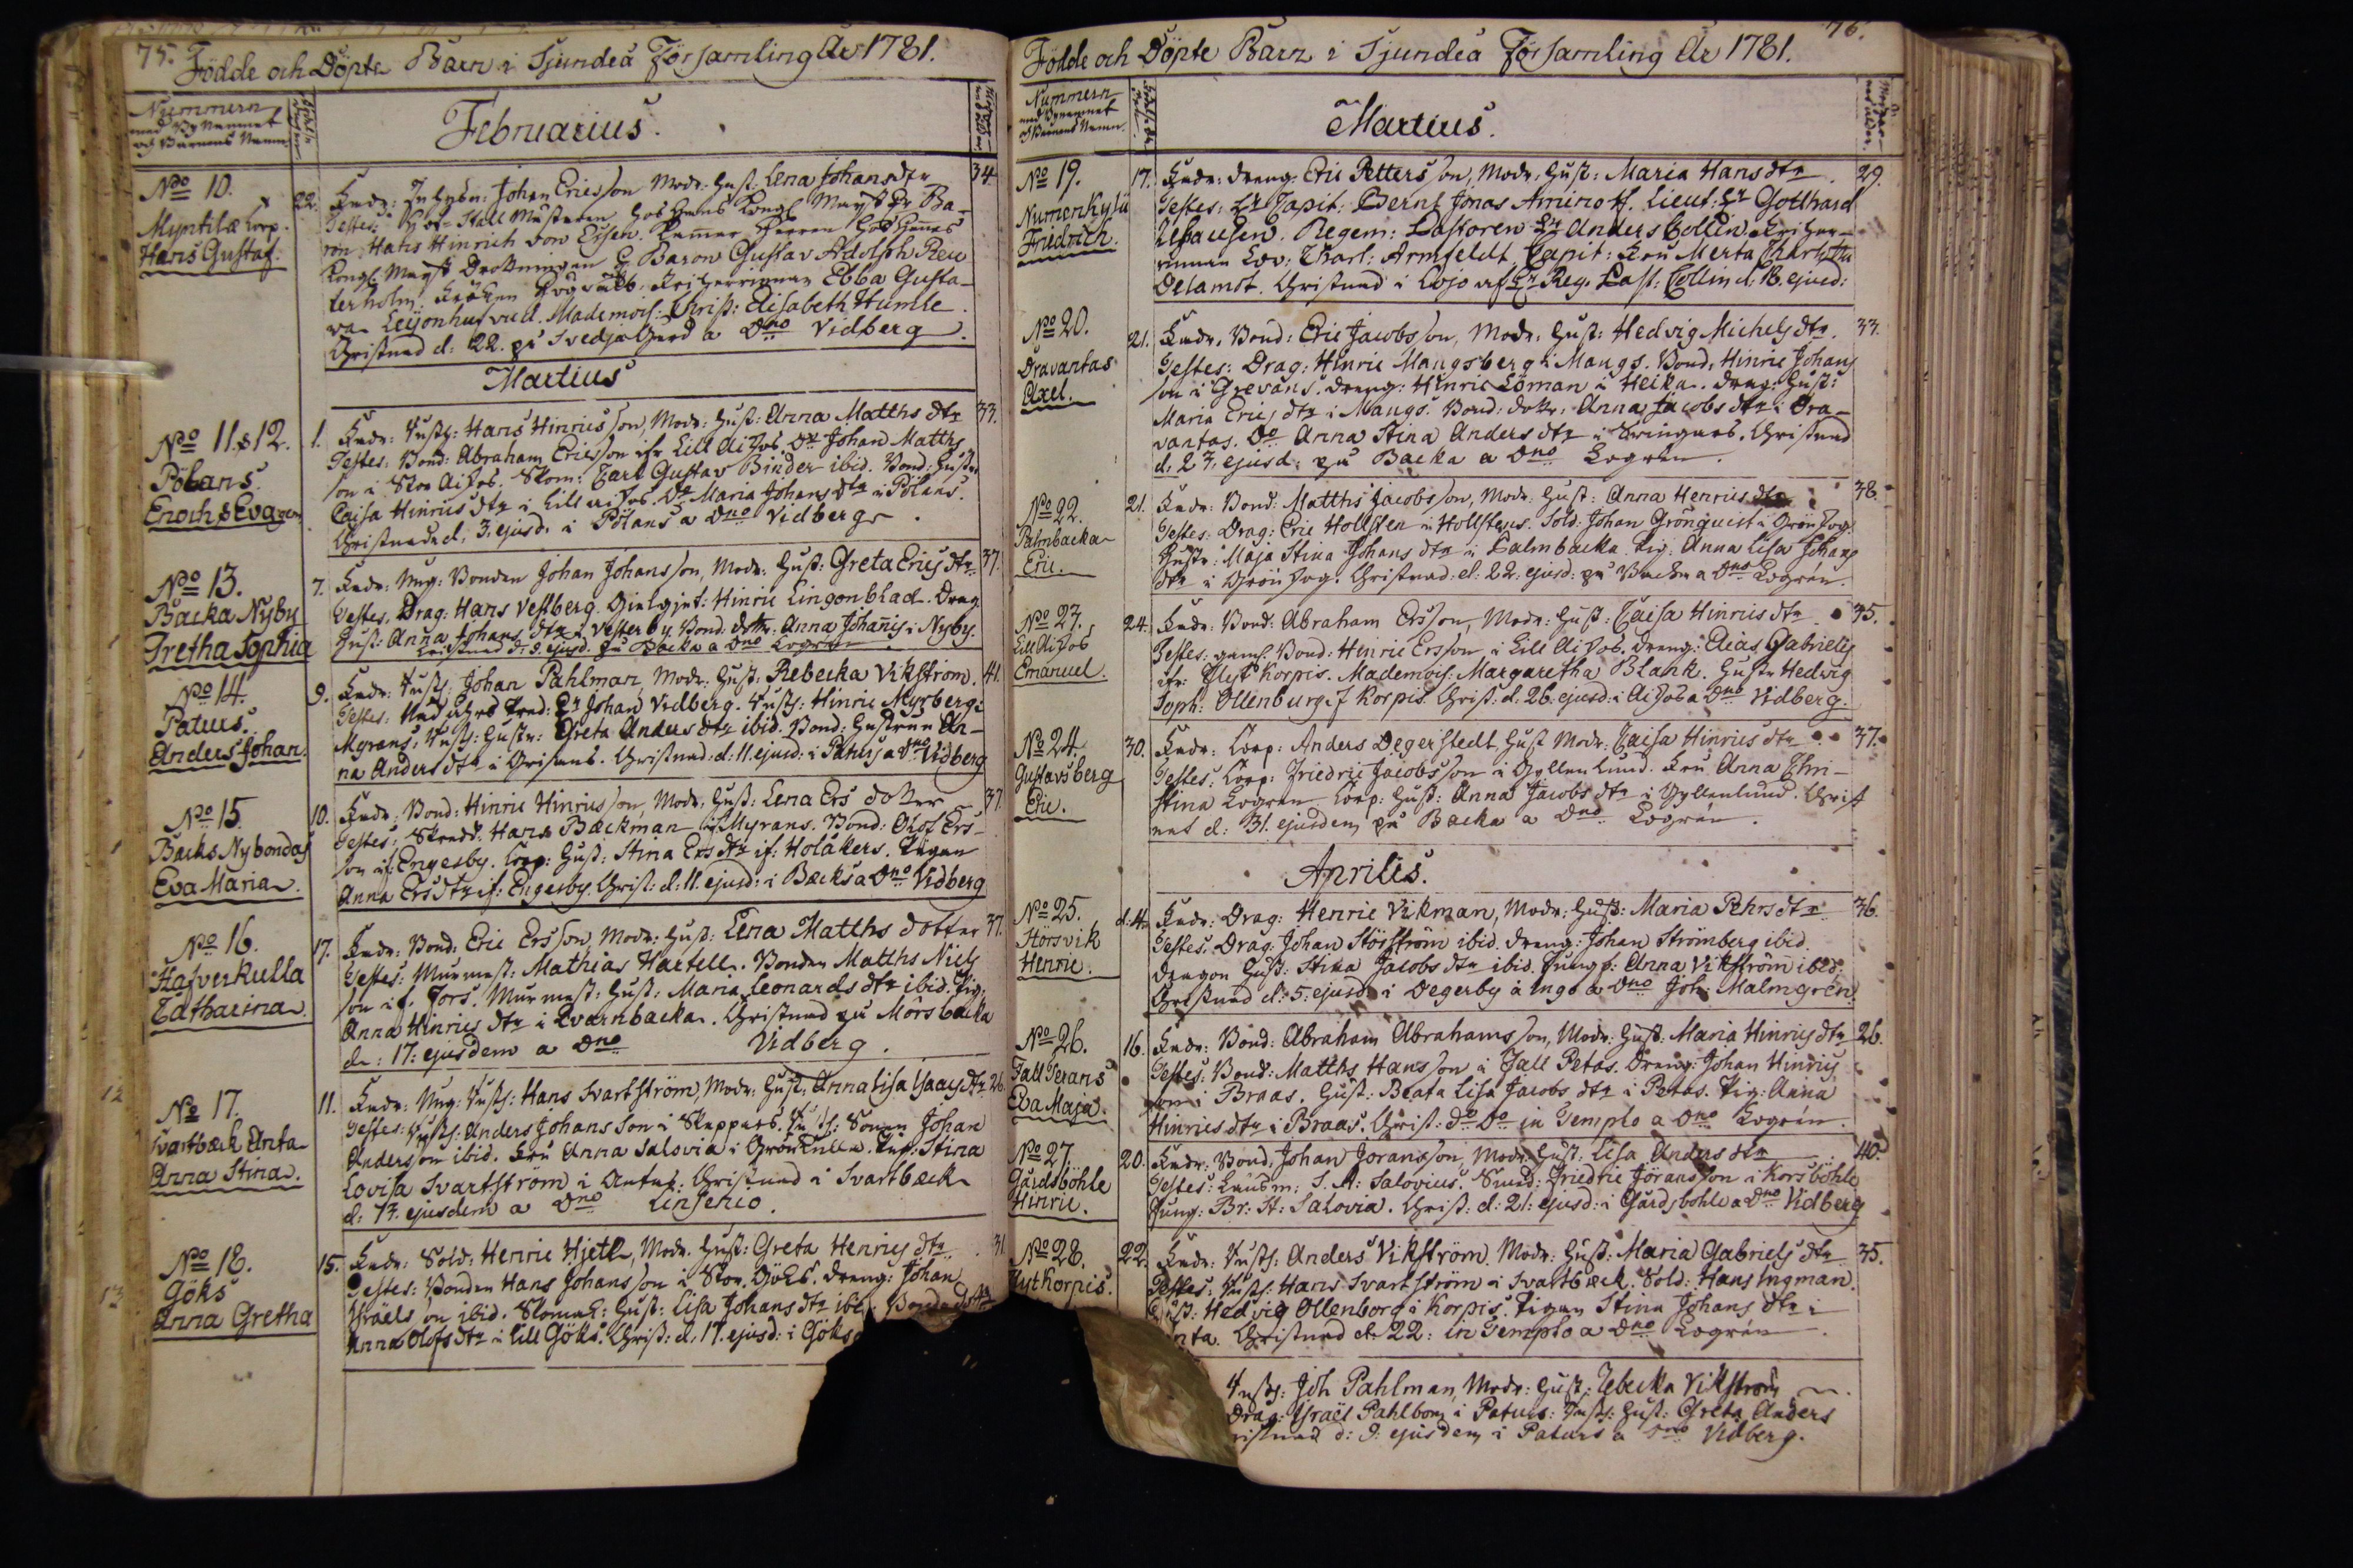 75.
Födde och Döpte Barn i Sjundeå Församling År 1781.
Nummern
med Bynamnet
och Barnens Namn
Februarius.
No 10.
Myntilä Corp.
Hans Gustaf.
22.
Fadr: Johan Ericsson Modr: Hust: Lena Johans dtr
34
Testes: Hof-Stall Mästaren hos Hans Kongl. Mayst Hr Ba-
ron Hans Hinrich von Essen. Kammar Herren hos Hennes
Kongl: Mayst Drottningen H Baron Gustav Adolph Reu
terholm. Fröken Friherrinnan Ebba Gusta-
va Leijonhufvud. Mademois: Christ: Elisabeth Humle.
Christnad d: 22. på Svedja Gård a Dno Vidberg.
Martius
No 11 & 12.
Pölans.
Enoch & Eva gem
1.
Fadr: Torp: Hans Hinricsson, Modr: Hust: Anna Matths dtr
33.
Testes: Bond: Abraham Ericsson ifr Lill Aijos. Dr Johan Matths
son i Stor Aijos. Skom: Carl Gustav Binder ibid. Bond: Hustr
Caisa Hinrics dtr i Lill Aijos. Do Maria Johans dtr i Pölans.
Christnade d: 3. ejusd: i Pölans a Dno Vidberg
No 13.
Backa Nyby
Gretha Sophia
7.
Fadr: Ung: Bonden Johan Johansson, Modr: Hust: Greta Erics dtr.
37.
Testes. Drag: Hans Vestberg. Hinric Lingonblad. Drag
Hust: Anna Johans dtr i Vesterby. Bond: dottr: Anna Johanis i Nyby.
Christnad d: 8. ejusd. på Backa a Dno Logrén
No 14.
Paturs.
Anders Johan.
9.
Fadr: Torp: Johan Pahlman, Modr: Hust: Rebecka Vikström.
41.
Testes: Hr Johan Vidberg. Torp: Hinric Myrberg i
Myrans, Torp: Hustr: Greta Anders dtr ibid. Bond: Hustrun An-
na Anders dtr i Grisans. Christnad: d: 11. ejusd: i Paturs a Dno Vidberg
No 15.
Bäcks Nybondas
Eva Maria.
10.
Fadr: Bond: Hinric Hinricsson, Modr: Hust: Lena Ers dotter
37.
Testes: Skredd: Hans Bäckman if Myrans. Bond: Olof Ers-
son if: Engesby. Corp: Hust: Stina Ers dtr if: Holåkers. Pigan
Anna Ers dtr if: Engesby. Christ: d: 11. ejusd: i Bäcks a Dno Vidberg
No 16.
Hafverkulla
Catharina.
17.
Fadr: Bond: Eric Ersson, Modr: Hust: Lena Matths dotter
37.
Testes: Murmest: Mathias Hartell. Bonden Matths Niels
son if. Jors. Murmest: Hust: Maria Leonards dtr ibid. Pig:
Anna Hinrics dtr i Qvarnbacka. Christnad på Mörsbacka
d: 17: ejusdem a Dno Vidberg.
No 17.
Svartbäck Anta
Anna Stina.
11.
Fadr: Ung: Torp: Hans Svartström, Modr: Hust: Anna Lisa Isaacs dtr
26.
Testes: Torp: Anders Johansson i Skeppars. Torp: Sonen Johan
Andersson ibid. Fru Anna Salovia i Grönkulla. Pig: Stina
Lovisa Svartström i Antas. Christnad i Svartbäck
d: 13. ejusdem a Dno Linsenio.
No 18.
Göks
Anna Gretha
15.
Fadr: Sold: Henric Hjelt, Modr: Hust: Greta Henrics dtr
31.
Testes: Bonden Hans Johansson i Stor Göks. Dreng: Johan
Israels son ibid. Hust: Lisa Johans dtr ibid: Bonde dtr
Anna Olofs dtr i Lill Göks. Christ: d. 17. ejusd: i Göks
76.
Födde och Döpte Barn i Sjundeå Församling År 1781.
Nummern
med Bynamnet
och Barnens Namn.
Martius.
No 19.
Numenkylä
Friedrich.
17.
Fadr: Dreng: Eric Pettersson, Modr: Hust: Maria Hans dtr
29.
Testes: Hr Capit: Bernt Jonas Aminoff. Lieut: Hr Gotthard
Regem: Pastoren Hr Anders Collin. Friher-
rinnan Lov: Charl: Armfeldt, Capit: Fru Merta Charlotta
Delamot. Christnad i Lojo af Hr Reg. Past: Collin d: 18. ejusd:
No 20.
Dravantas
Axel.
21.
Fadr: Bond: Eric Jacobsson, Modr: Hust: Hedvig Michels dtr.
33.
Testes: Drag: Hinric Mangsberg i Mangs. Bond: Hinric Johans
son i Grevans. Dreng: Hinric Löman i Heika. Dreng: Hust:
Maria Erics dtr i Mangs. Bond: dottr: Anna Jacobs dtr i Dra-
vantas. Do Anna Stina Anders dtr i Svinguas. Christnad
d: 23. ejusd: på Backa a Dno Logrén.
No 22.
Palmbacka
Eric.
21.
Fadr: Bond: Matths Jacobsson, Modr: Hust: Anna Henrics dtr
38.
Testes: Drag: Eric Hollsten i Hollstens. Sold: Johan Grönquist i Grönskog.
Hustr: Maja Stina Johans dtr i Palmbacka. Pig: Anna Lisa Johans
dtr i Grönskog. Christnad: d: 22: ejusd: på Backa a Dno Logrén.
No 23.
Lill Aijos
Emanuel.
24.
Fadr: Bond: Abraham Ersson, Modr: Hust: Caisa Hinrics dtr
35.
Testes: gaml. Bond: Hinric Ersson i Lill Aijos. Dreng: Elias Gabriels
ifr: Flyt Korpis. Mademois: Margaretha Blank. Hustr Hedvig
Soph: Ollenburg if Korpis. Christ: d: 26. ejusd: i Aijos a Dno Vidberg.
No 24.
Gustavsberg
Eric.
30.
Fadr: Corp: Anders Degerstedt, Hust Modr: Caisa Hinrics dtr
37.
Testes: Corp: Friedric Jacobsson i Gyllenlund. Fru Anna Chri-
stina Logrén. Corp: Hust: Anna Jacobs dtr i Gyllenlund. Christ
nat d: 31. ejusdem på Backa a Dno Logrén.
Aprilis.
No 25.
Störsvik
Henric.
d. 4.
Fadr: Drag: Henric Vikman, Modr: Hust: Maria Pehrs dtr
36.
Testes: Drag: Johan Störström ibid. Dreng: Johan Strömberg ibid.
Dragon Hust: Stina Jacobs dtr ibid. Jungf: Anna Vikström ibid:
Christnad d: 5: ejusd: i Degerby i Ingo a Dno Joh: Malmgrén.
No 26.
Fall Perans
Eva Maja.
16.
Fadr: Bond: Abraham Abrahamsson, Modr: Hust: Maria Hinrics dtr
26.
Testes: Bond: Matths Hansson i Fall Petas. Dreng: Johan Hinrics
son i Braas. Hust: Beata Lisa Jacobs dtr i Petas. Pig: Anna
Hinrics dtr i Braas. Christ: Do Do in Templo a Dno Logrén.
No 27.
Gårdsböhle
Hinric.
20.
Fadr: Bond: Johan Joransson, Modr: Hust: Lisa Anders dtr
40.
Testes: Länsm: S. A: Salovius. Smed: Friedric Jöransson i Korsböhle
Jung: Br: St: Salovia. Christ: d: 21: ejusd: i Gårdsböhle a Dno Vidberg
No 28.
Flytkorpis.
22.
Fadr: Torp: Anders Vikström. Modr: Hust: Maria Gabriels dtr
35.
Testes: Torp: Hans Svartström i Svartbäck. Sold: Hans Ingman.
Hust: Hedvig Ollenborg i Korpis. Pigan Stina Johans dtr i
nta. Christnad d: 22: in Templo a Dno Logrén.
Torp: Joh Pahlman, Modr: Hust: Rebecka Vikström
Drag: Israël Pahlbom i Paturs: Torp: Hust: Greta Anders
ristnad d: 9: ejusdem i Paturs a Dno Vidberg.